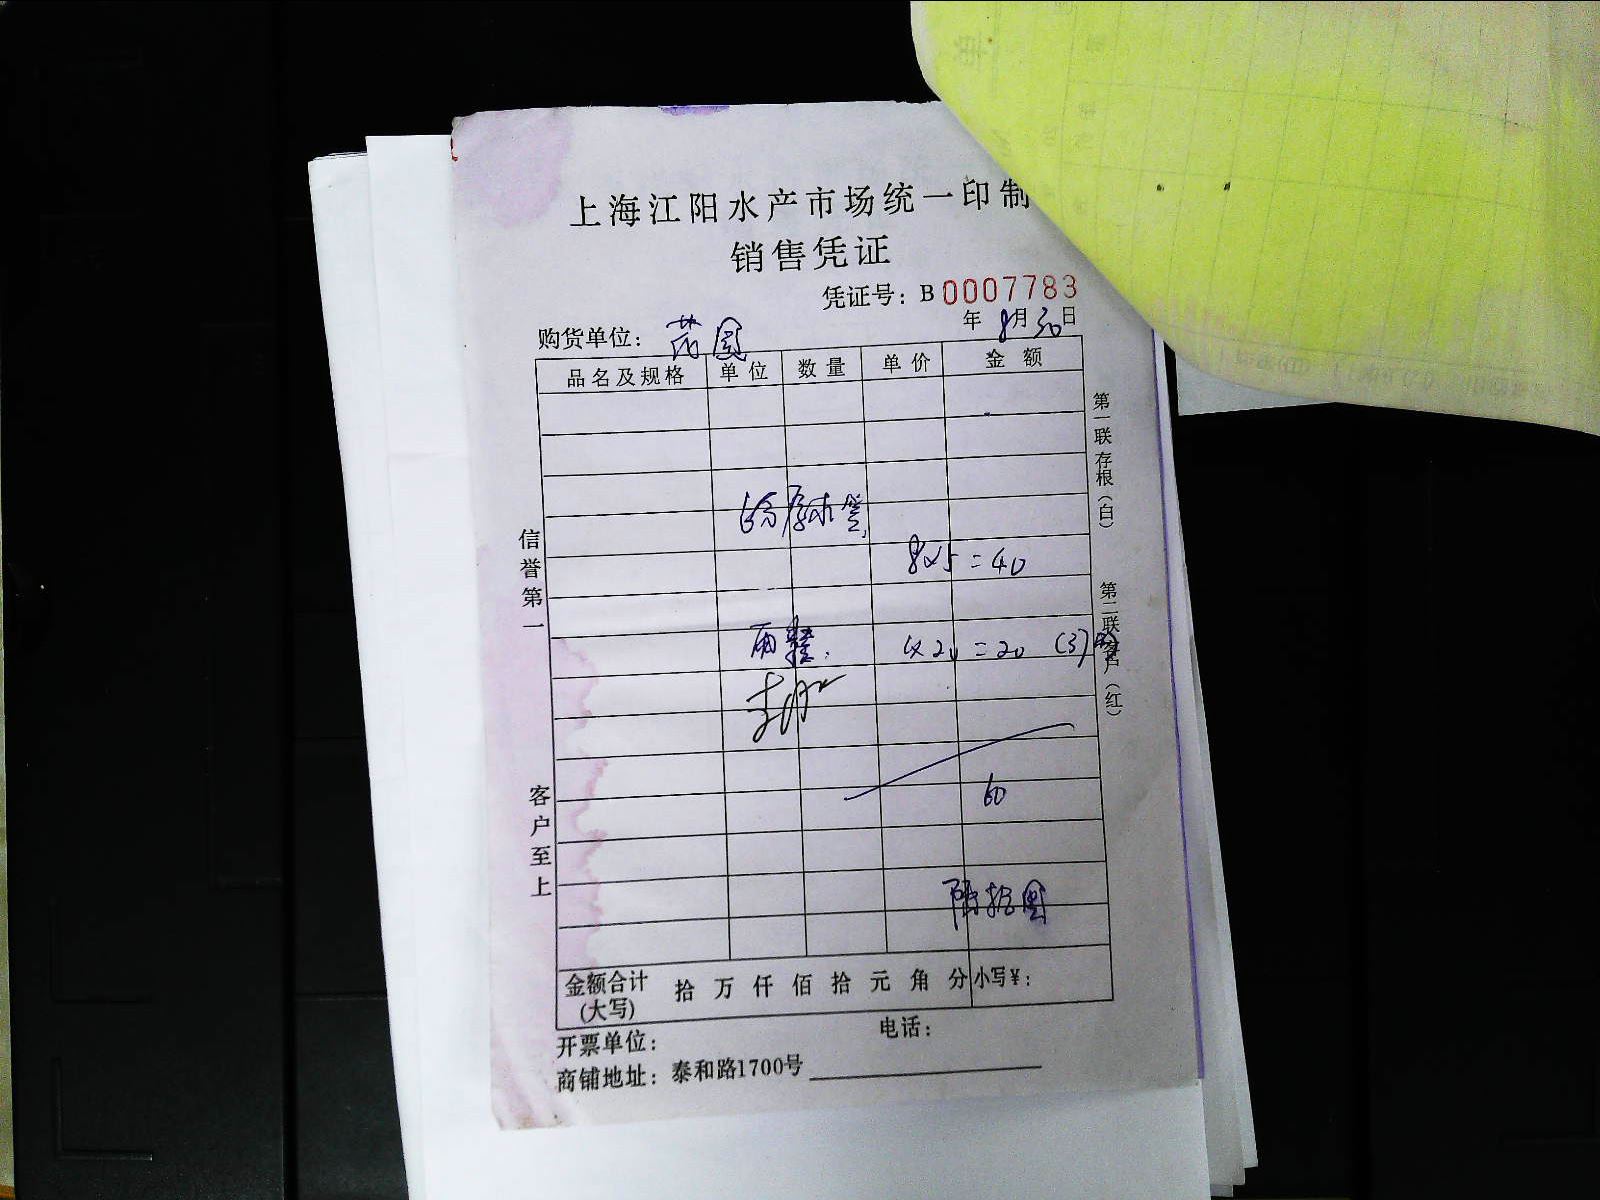 上海江阳水产市场统一印制
销售凭证
凭证号：B 0007783
年 8月30日
购货单位：
品名及规格 单位 数量 单价 金额
8×5=40
雨鞋. 1×20=20 (37
60
金额合计 (大写) 拾 万 仟 佰 拾 元 角 分 小写¥：
开票单位： 电话：
商铺地址：泰和路1700号
信誉第一
客户至上
第一联存根（白）
第二联客户（红）